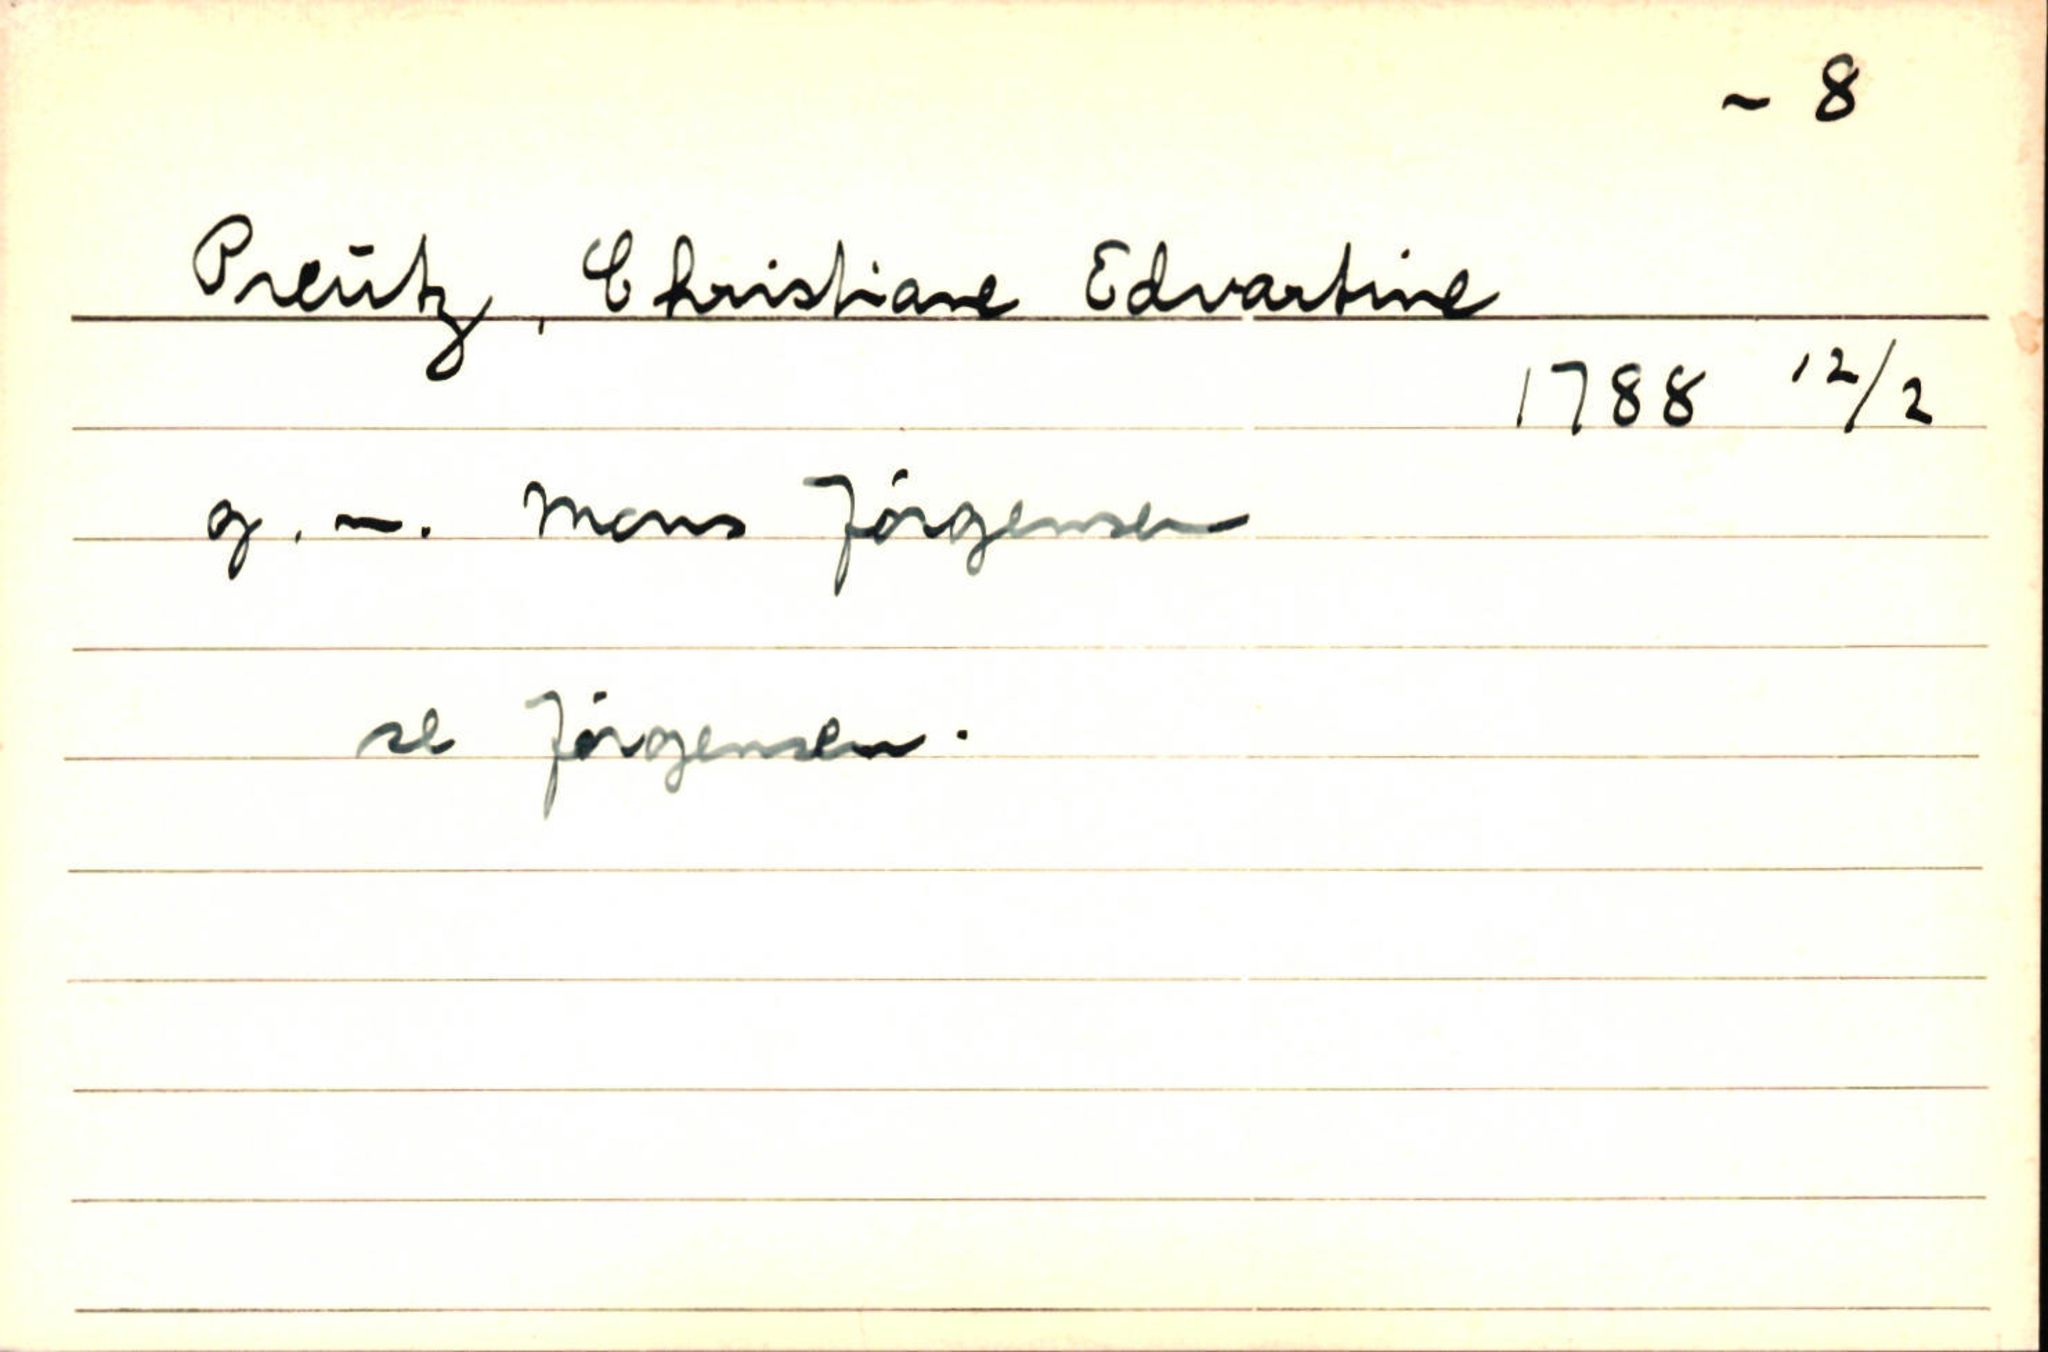 ~ 8
Preutz, Christiane Edvartine
1788 12/2
g. ~. Mons Jörgensen
se Jörgensen.